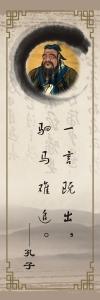 一言既出，
驷马难追。
——孔子